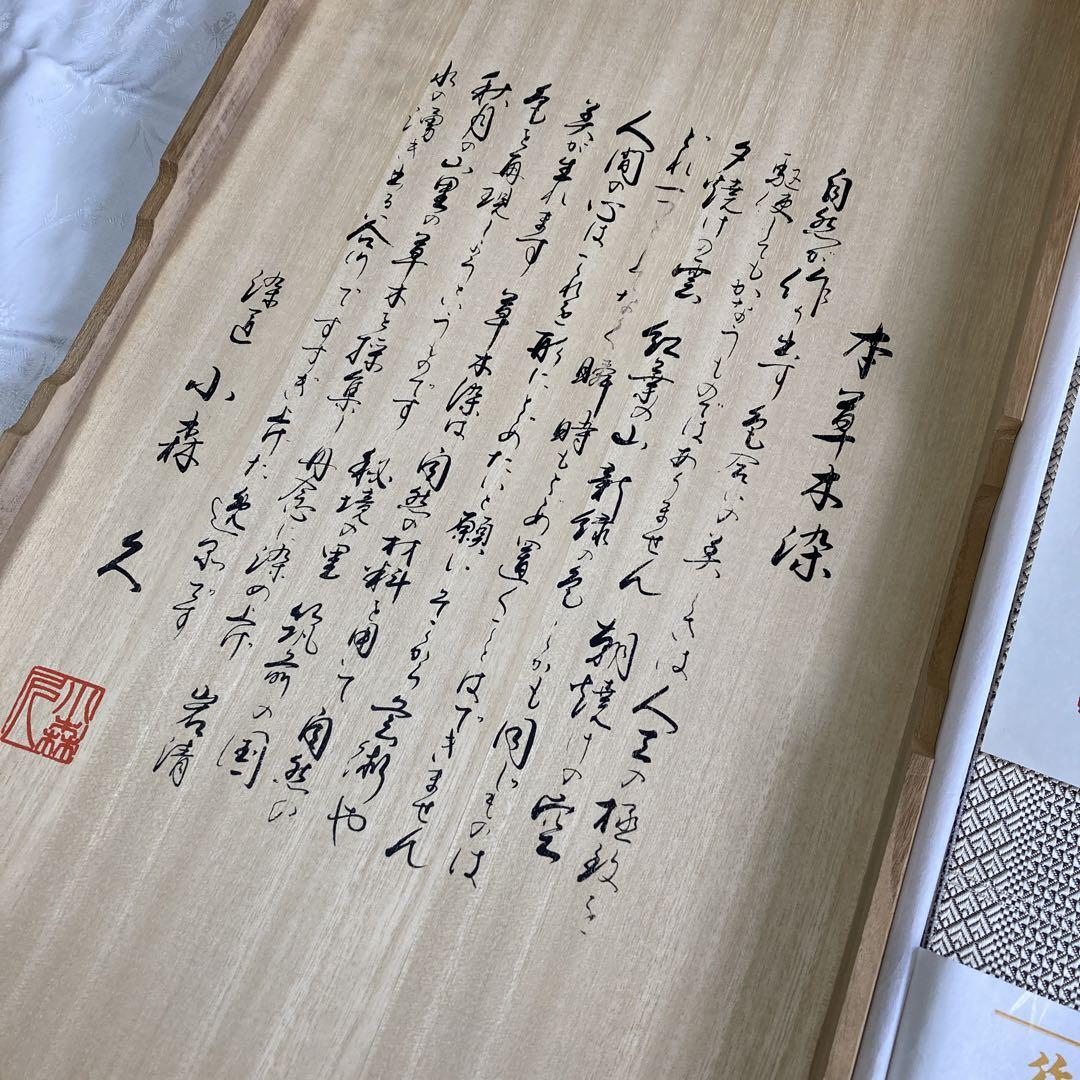 本草木染
自然が作り出す色合いの美しさは人工の極致を
駆使してもかなうものではありません 朝焼けの空
夕焼けの雲 紅葉の山 新緑の色 しかも同じものは
どれ一つとしてなく瞬時もとどめ置くことはできません
人間の心はこれを形にとどめたいと願い そこから芸術や
美が生れます 草木染は自然の材料を用いて 自然の
色を再現しようというものです 秘境の里 筑前の国
秋月の山里の草木を採集し丹念に染め上げ 岩清
水の湧き出る谷川ですすぎ上げた逸品です
染匠 小森 久
小森久